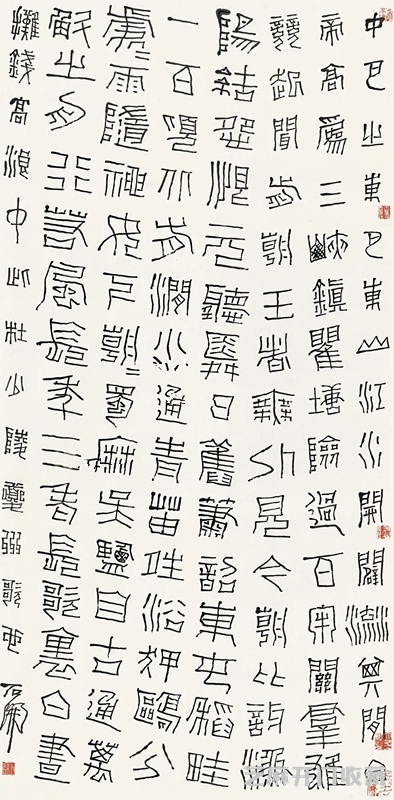 中巴之東巴東山江水開闢流其間白
帝高為三峽鎮瞿塘險過百牢關羣雄
競起問前朝王者無外見今朝比訝漁
陽結怨恨元聽舜日舊簫韶東屯稻畦
一百頃北有澗水通青苗晴浴狎鷗分
處〻雨隨神女下朝〻蜀麻吳鹽自古通萬
斛之舟行若風長年三老長歌裏白晝
攤錢高浪中此杜少陵夔州歌也石開